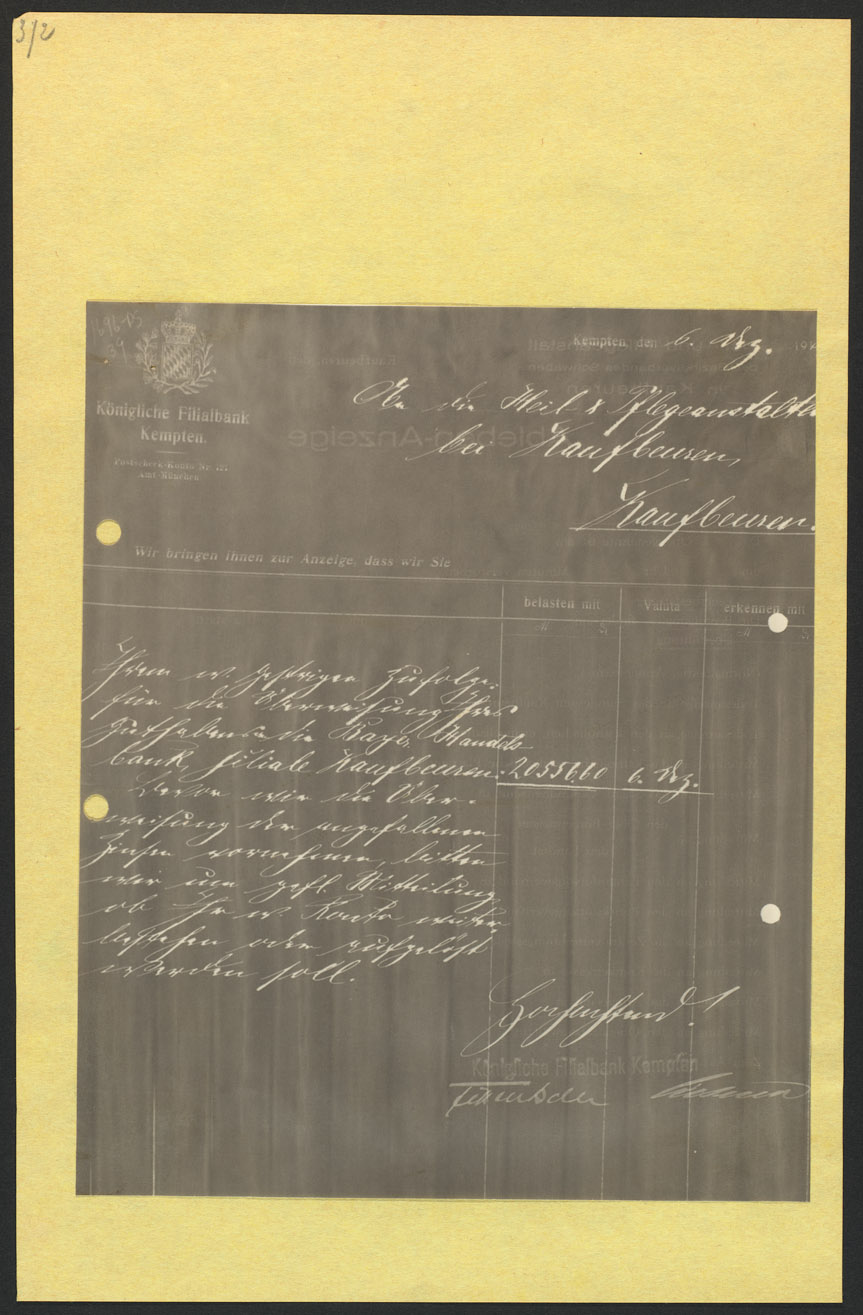 312
Königliche Filialbank
Kempten.
Postscheck-Konto Nr. 121
Amt München
Kempten, den 6. Dez.
An die Heil & Pflegeanstalten
bei Kaufbeuren,
Kaufbeuren.
Wir bringen ihnen zur Anzeige, dass wir Sie
belasten mit Valuta erkennen mit
Ihrem w. Gestrigen zufolge.
für die Überweisung Ihres
Guthabens a. die Bayr. Handels
bank, Filiale Kaufbeuren. 20556.60 6. Dez.
Bevor wir die Über-
weisung der angefallenen
Zinsen vornehmen, bitten
wir um gefl. Mitteilung
ob Ihr w. Konto weiter
bestehen oder aufgelöst
werden soll.
Hochachtend!
Königliche Filialbank Kempten